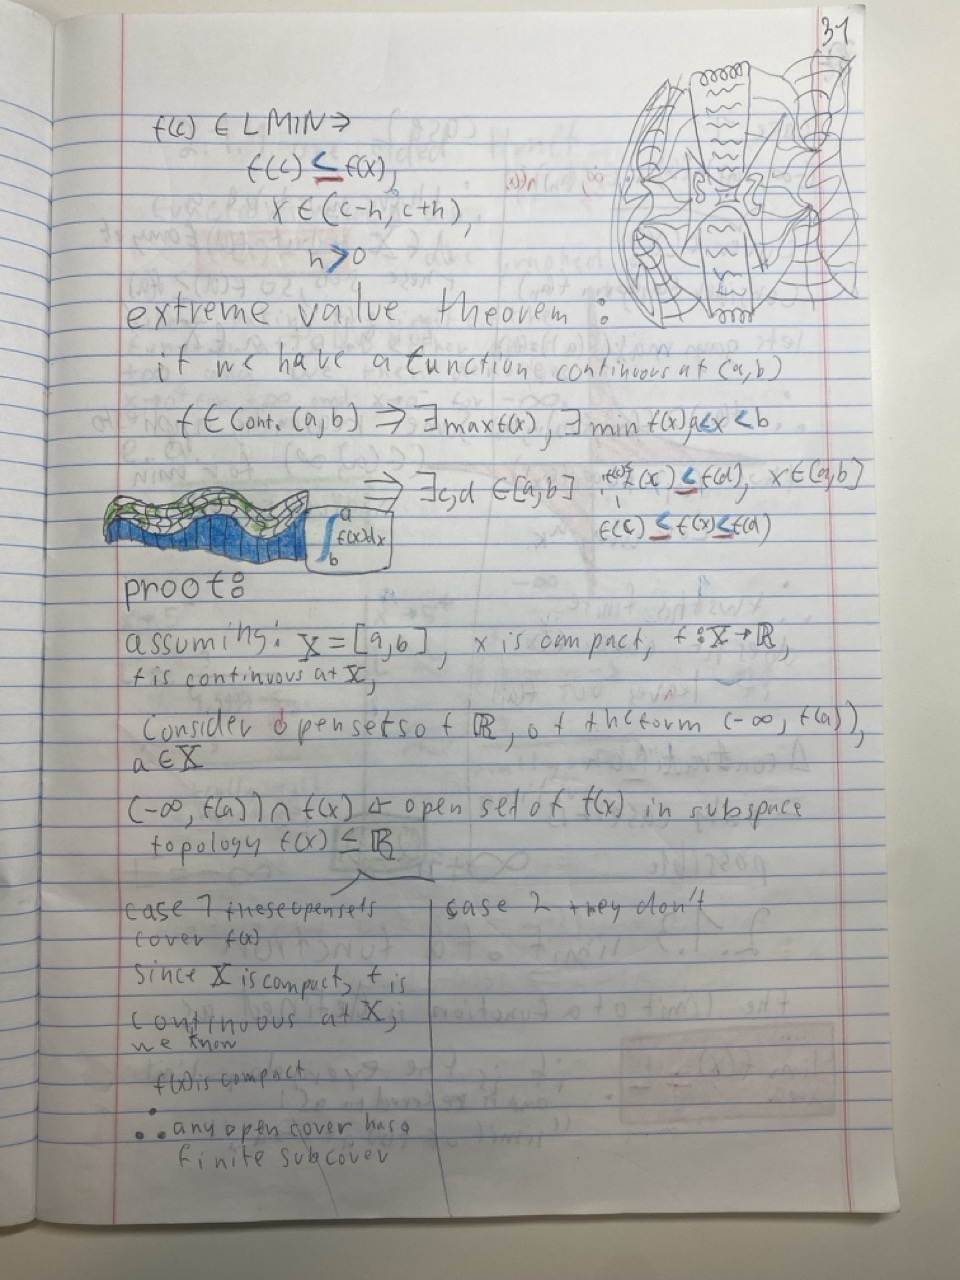 31
f(c) ∈ L MIN ⇒
f(c) ≤ f(x),
x ∈ (c-h, c+h),
h>0
extreme value theorem:
if we have a function continuous at (a,b)
f ∈ Cont. (a,b) ⇒ ∃ max f(x), ∃ min f(x) a<x<b
⇒ ∃ c,d ∈ [a,b] f(x) ≤ f(d), x ∈ [a,b]
f(c) ≤ f(x) ≤ f(d)
∫ a b f(x)dx
proof:
assuming: X = [a,b], x is compact, f: X → ℝ,
f is continuous at X,
Consider open sets of ℝ, of the form (-∞, f(a)),
a ∈ X
(-∞, f(a)) ∩ f(x) ← open set of f(x) in subspace
topology f(x) ⊆ ℝ
case 1 these open sets
cover f(x)
since X is compact, f is
continuous at X,
we know
f(x) is compact
∴ any open cover has a
finite subcover
case 2 they don't